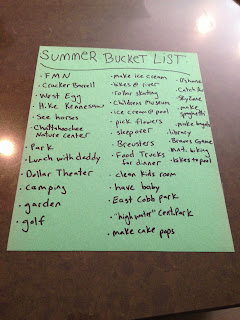 SUMMER BUCKET LIST
· FMN
· Cracker Barrell
· West Egg
· Hike Kennesaw
· see horses
· Chattahoochee
Nature center
· Park
· Lunch with daddy
· Dollar Theater
· camping
· garden
· golf
· make ice cream
· bikes @ river
· roller skating
· Childrens Museum
· ice cream @ pool
· pick flowers
· sleepover
· Brewsters
· Food Trucks
for dinner
· clean kids room
· have baby
· East Cobb park
· "high water" Cent. Park
· make cake pops
· Catch
· SkyZone
· make
spaghetti
· make bagels
· library
· Braves Game
· mnt. biking
· bikes to pool